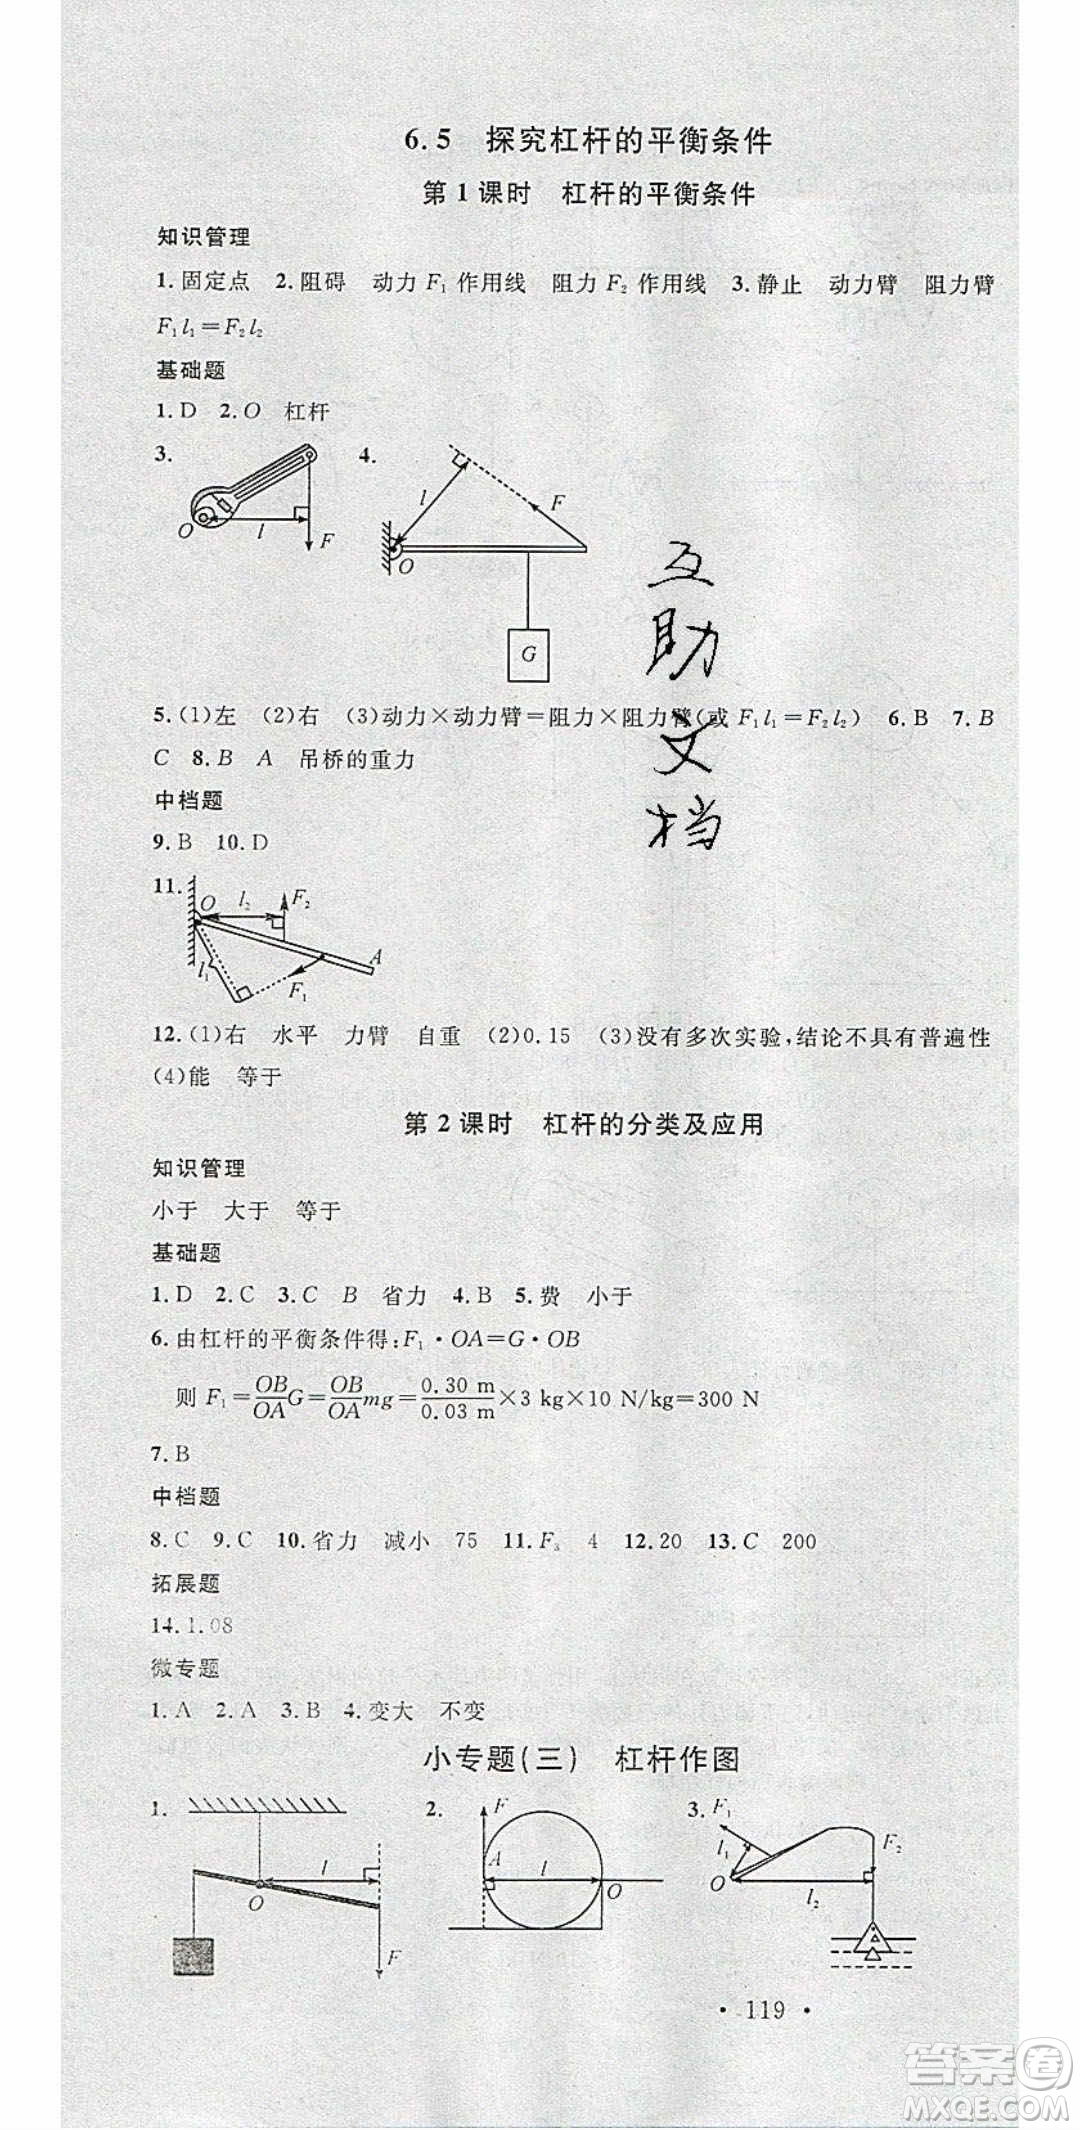 6.5 探究杠杆的平衡条件
第1课时 杠杆的平衡条件
知识管理
1.固定点 2.阻碍 动力F₁作用线 阻力F₂作用线 3.静止 动力臂 阻力臂
F₁l₁=F₂l₂
基础题
1.D 2.O 杠杆
3. O l F 4. l F O G
互
助
文
档
5.(1)左 (2)右 (3)动力×动力臂=阻力×阻力臂(或F₁l₁=F₂l₂) 6.B 7.B
C 8.B A 吊桥的重力
中档题
9.B 10.D
11. O l₂ F₂ A l₁ F₁
12.(1)右 水平 力臂 自重 (2)0.15 (3)没有多次实验,结论不具有普遍性
(4)能 等于
第2课时 杠杆的分类及应用
知识管理
小于 大于 等于
基础题
1.D 2.C 3.C B 省力 4.B 5.费 小于
6.由杠杆的平衡条件得:F₁·OA=G·OB
则F₁=OB/OA G=OB/OA mg=0.30 m/0.03 m×3 kg×10 N/kg=300 N
7.B
中档题
8.C 9.C 10.省力 减小 75 11.F₃ 4 12.20 13.C 200
拓展题
14.1.08
微专题
1.A 2.A 3.B 4.变大 不变
小专题(三) 杠杆作图
1. l O F 2. F A l O 3. F₁ l₁ F₂ O l₂
· 119 ·
答案卷
MXQE.COM